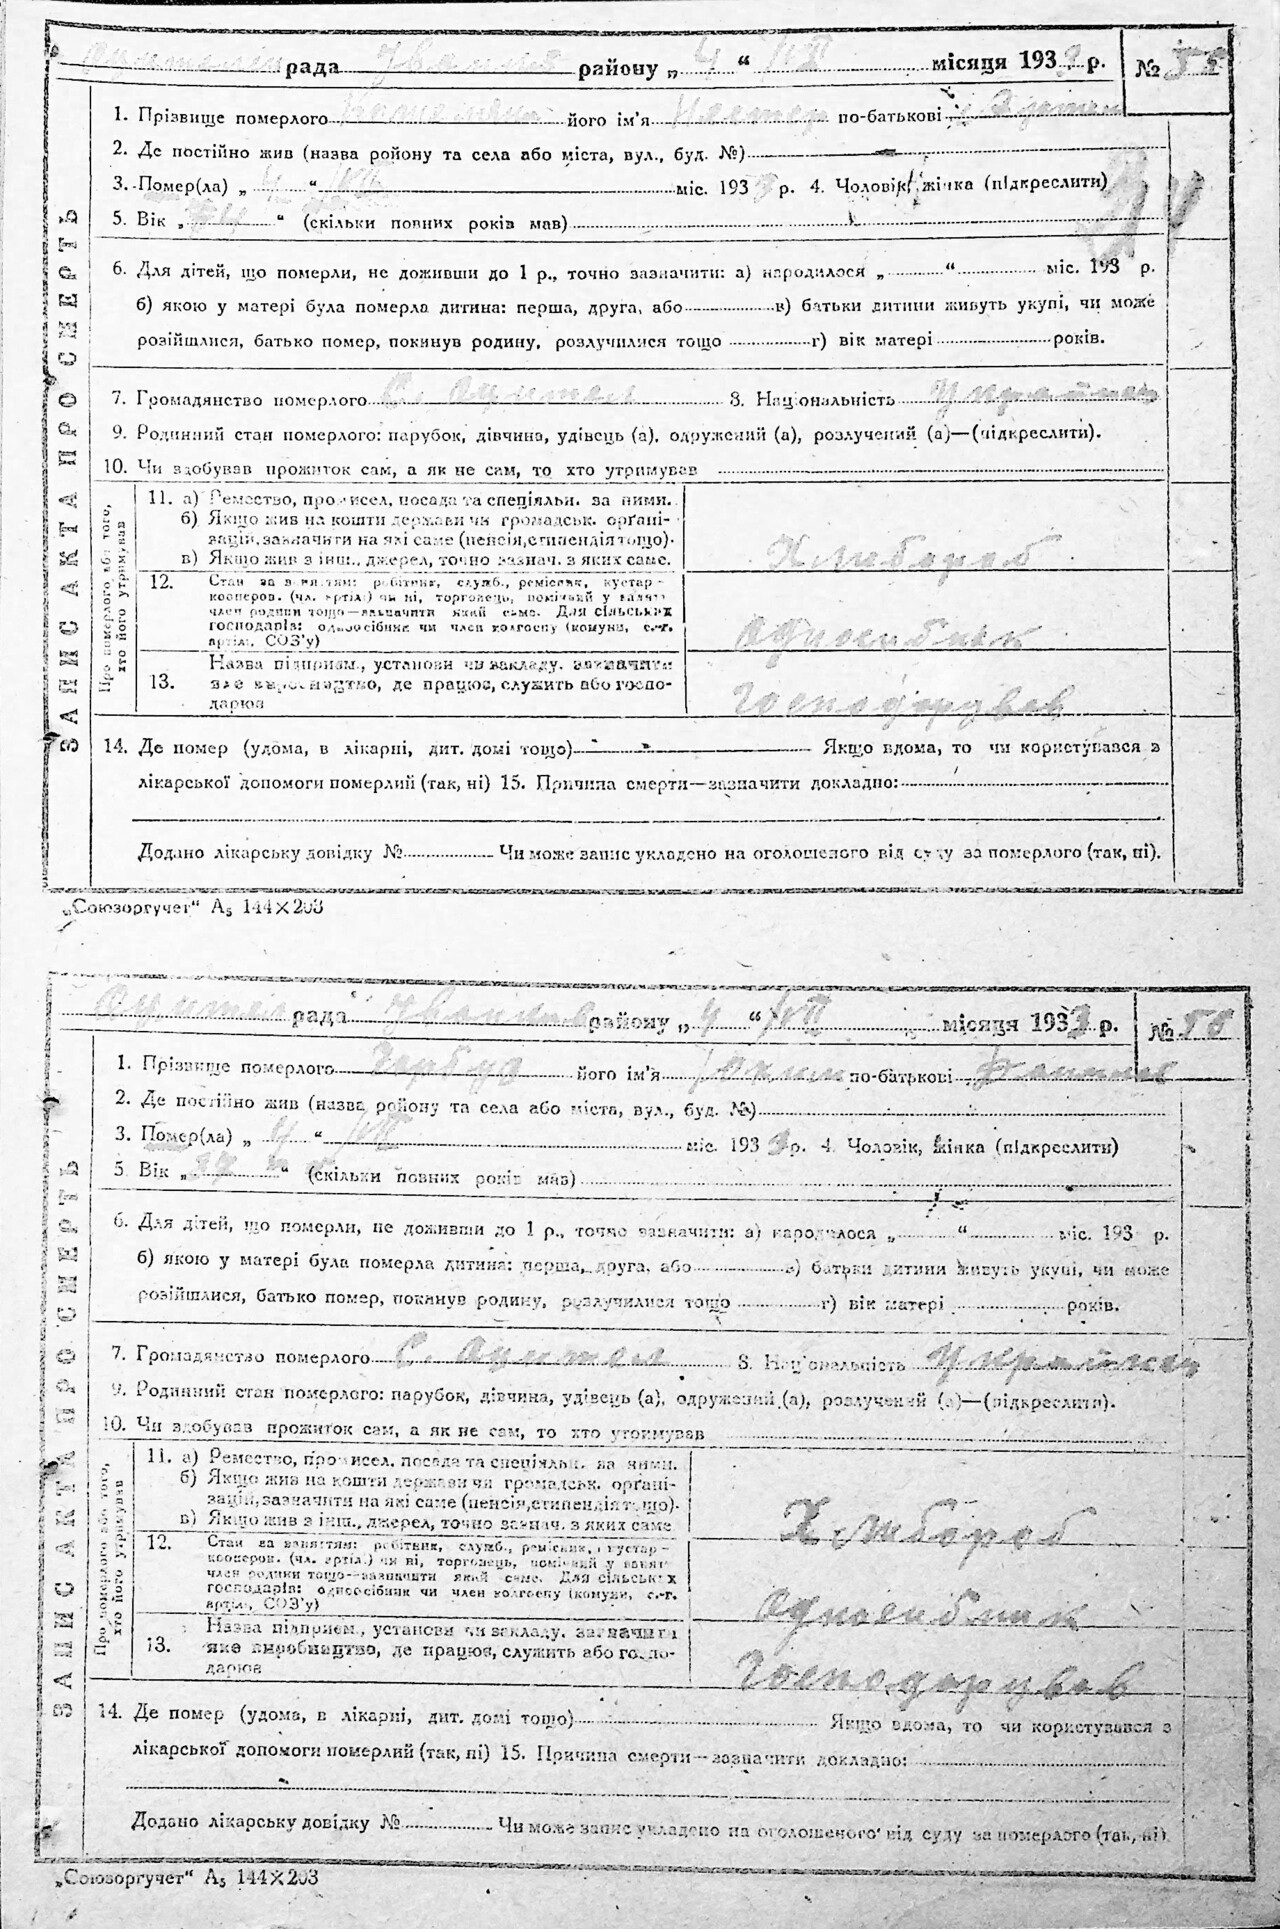 рада району „ 4 “ VII місяця 1933 р. №
1. Прізвище померлого його ім'я Нестер по-батькові
2. Де постійно жив (назва ройону та села або міста, вул., буд. №)
3. Помер(ла) „ 4 “ VII міс. 1933 р. 4. Чоловік, жінка (підкреслити)
5. Вік „ “ (скільки повних років мав)
6. Для дітей, що померли, не доживши до 1 р., точно зазначити: а) народилося „ “ міс. 193 р.
б) якою у матері була померла дитина: перша, друга, або в) батьки дитини живуть укупі, чи може
розійшлися, батько помер, покинув родину, розлучилися тощо г) вік матері років.
7. Громадянство померлого С. 8. Національність Українец
9. Родинний стан померлого: парубок, дівчина, удівець (а), одружений (а), розлучений (а)—(підкреслити).
10. Чи здобував прожиток сам, а як не сам, то хто утримував
ЗАПИС АКТА ПРО СМЕРТЬ
Про померлого або того, хто його утримував
11. а) Ремество, промисел, посада та спеціяльн. за ними.
б) Якщо жив на кошти держави чи громадськ. орґані-
зацій, зазначити на які саме (пенсія, стипендія тощо).
в) Якщо жив з інш., джерел, точно зазнач. з яких саме.
Хлибороб
12. Стан за заняттям: робітник, служб., ремісник, кустар-
кооперов. (чл. артіл.) чи ні, торговець, помічний у занят.
член родини тощо—зазначити який саме. Для сільських
господарів: одноосібник чи член колгоспу (комуни, с.-г.
артіл., СОЗ'у)
Одноосибник
13. Назва підприєм., установи чи закладу. зазначити
яке виробництво, де працює, служить або госпо-
дарює
Господарував
14. Де помер (удома, в лікарні, дит. домі тощо) Якщо вдома, то чи користувався з
лікарської допомоги померлий (так, ні) 15. Причина смерти—зазначити докладно:
Додано лікарську довідку № Чи може запис укладено на оголошеного від суду за померлого (так, ні).
„Союзоргучет“ А5 144×203
рада району „ 4 “ VII місяця 1933 р. №
1. Прізвище померлого Горбуз його ім'я Юхим по-батькові
2. Де постійно жив (назва району та села або міста, вул., буд. №)
3. Помер(ла) „ 4 “ VII міс. 1933 р. 4. Чоловік, жінка (підкреслити)
5. Вік „ “ (скільки повних років мав)
6. Для дітей, що померли, не доживши до 1 р., точно зазначити: а) народилося „ “ міс. 193 р.
б) якою у матері була померла дитина: перша, друга, або в) батьки дитини живуть укупі, чи може
розійшлися, батько помер, покинув родину, розлучилися тощо г) вік матері років.
7. Громадянство померлого С. 8. Національність Українец
9. Родинний стан померлого: парубок, дівчина, удівець (а), одружений (а), розлучений (а)—(підкреслити).
10. Чи здобував прожиток сам, а як не сам, то хто утримував
ЗАПИС АКТА ПРО СМЕРТЬ
Про померлого або того, хто його утримував
11. а) Ремество, промисел, посада та спеціяльн. за ними.
б) Якщо жив на кошти держави чи громадськ. орґані-
зацій, зазначити на які саме (пенсія, стипендія тощо).
в) Якщо жив з інш., джерел, точно зазнач. з яких саме
Хлибороб
12. Стан за заняттям: робітник, служб., ремісник, кустар-
кооперов. (чл. артіл.) чи ні, торговець, помічний у занят.
член родини тощо—зазначити який саме. Для сільських
господарів: одноосібник чи член колгоспу (комуни, с.-г.
артіл., СОЗ'у)
Одноосибник
13. Назва підприєм., установи чи закладу. зазначити
яке виробництво, де працює, служить або госпо-
дарює
Господарував
14. Де помер (удома, в лікарні, дит. домі тощо) Якщо вдома, то чи користувався з
лікарської допомоги померлий (так, ні) 15. Причина смерти—зазначити докладно:
Додано лікарську довідку № Чи може запис укладено на оголошеного від суду за померлого (так, ні)
„Союзоргучет“ А5 144×203